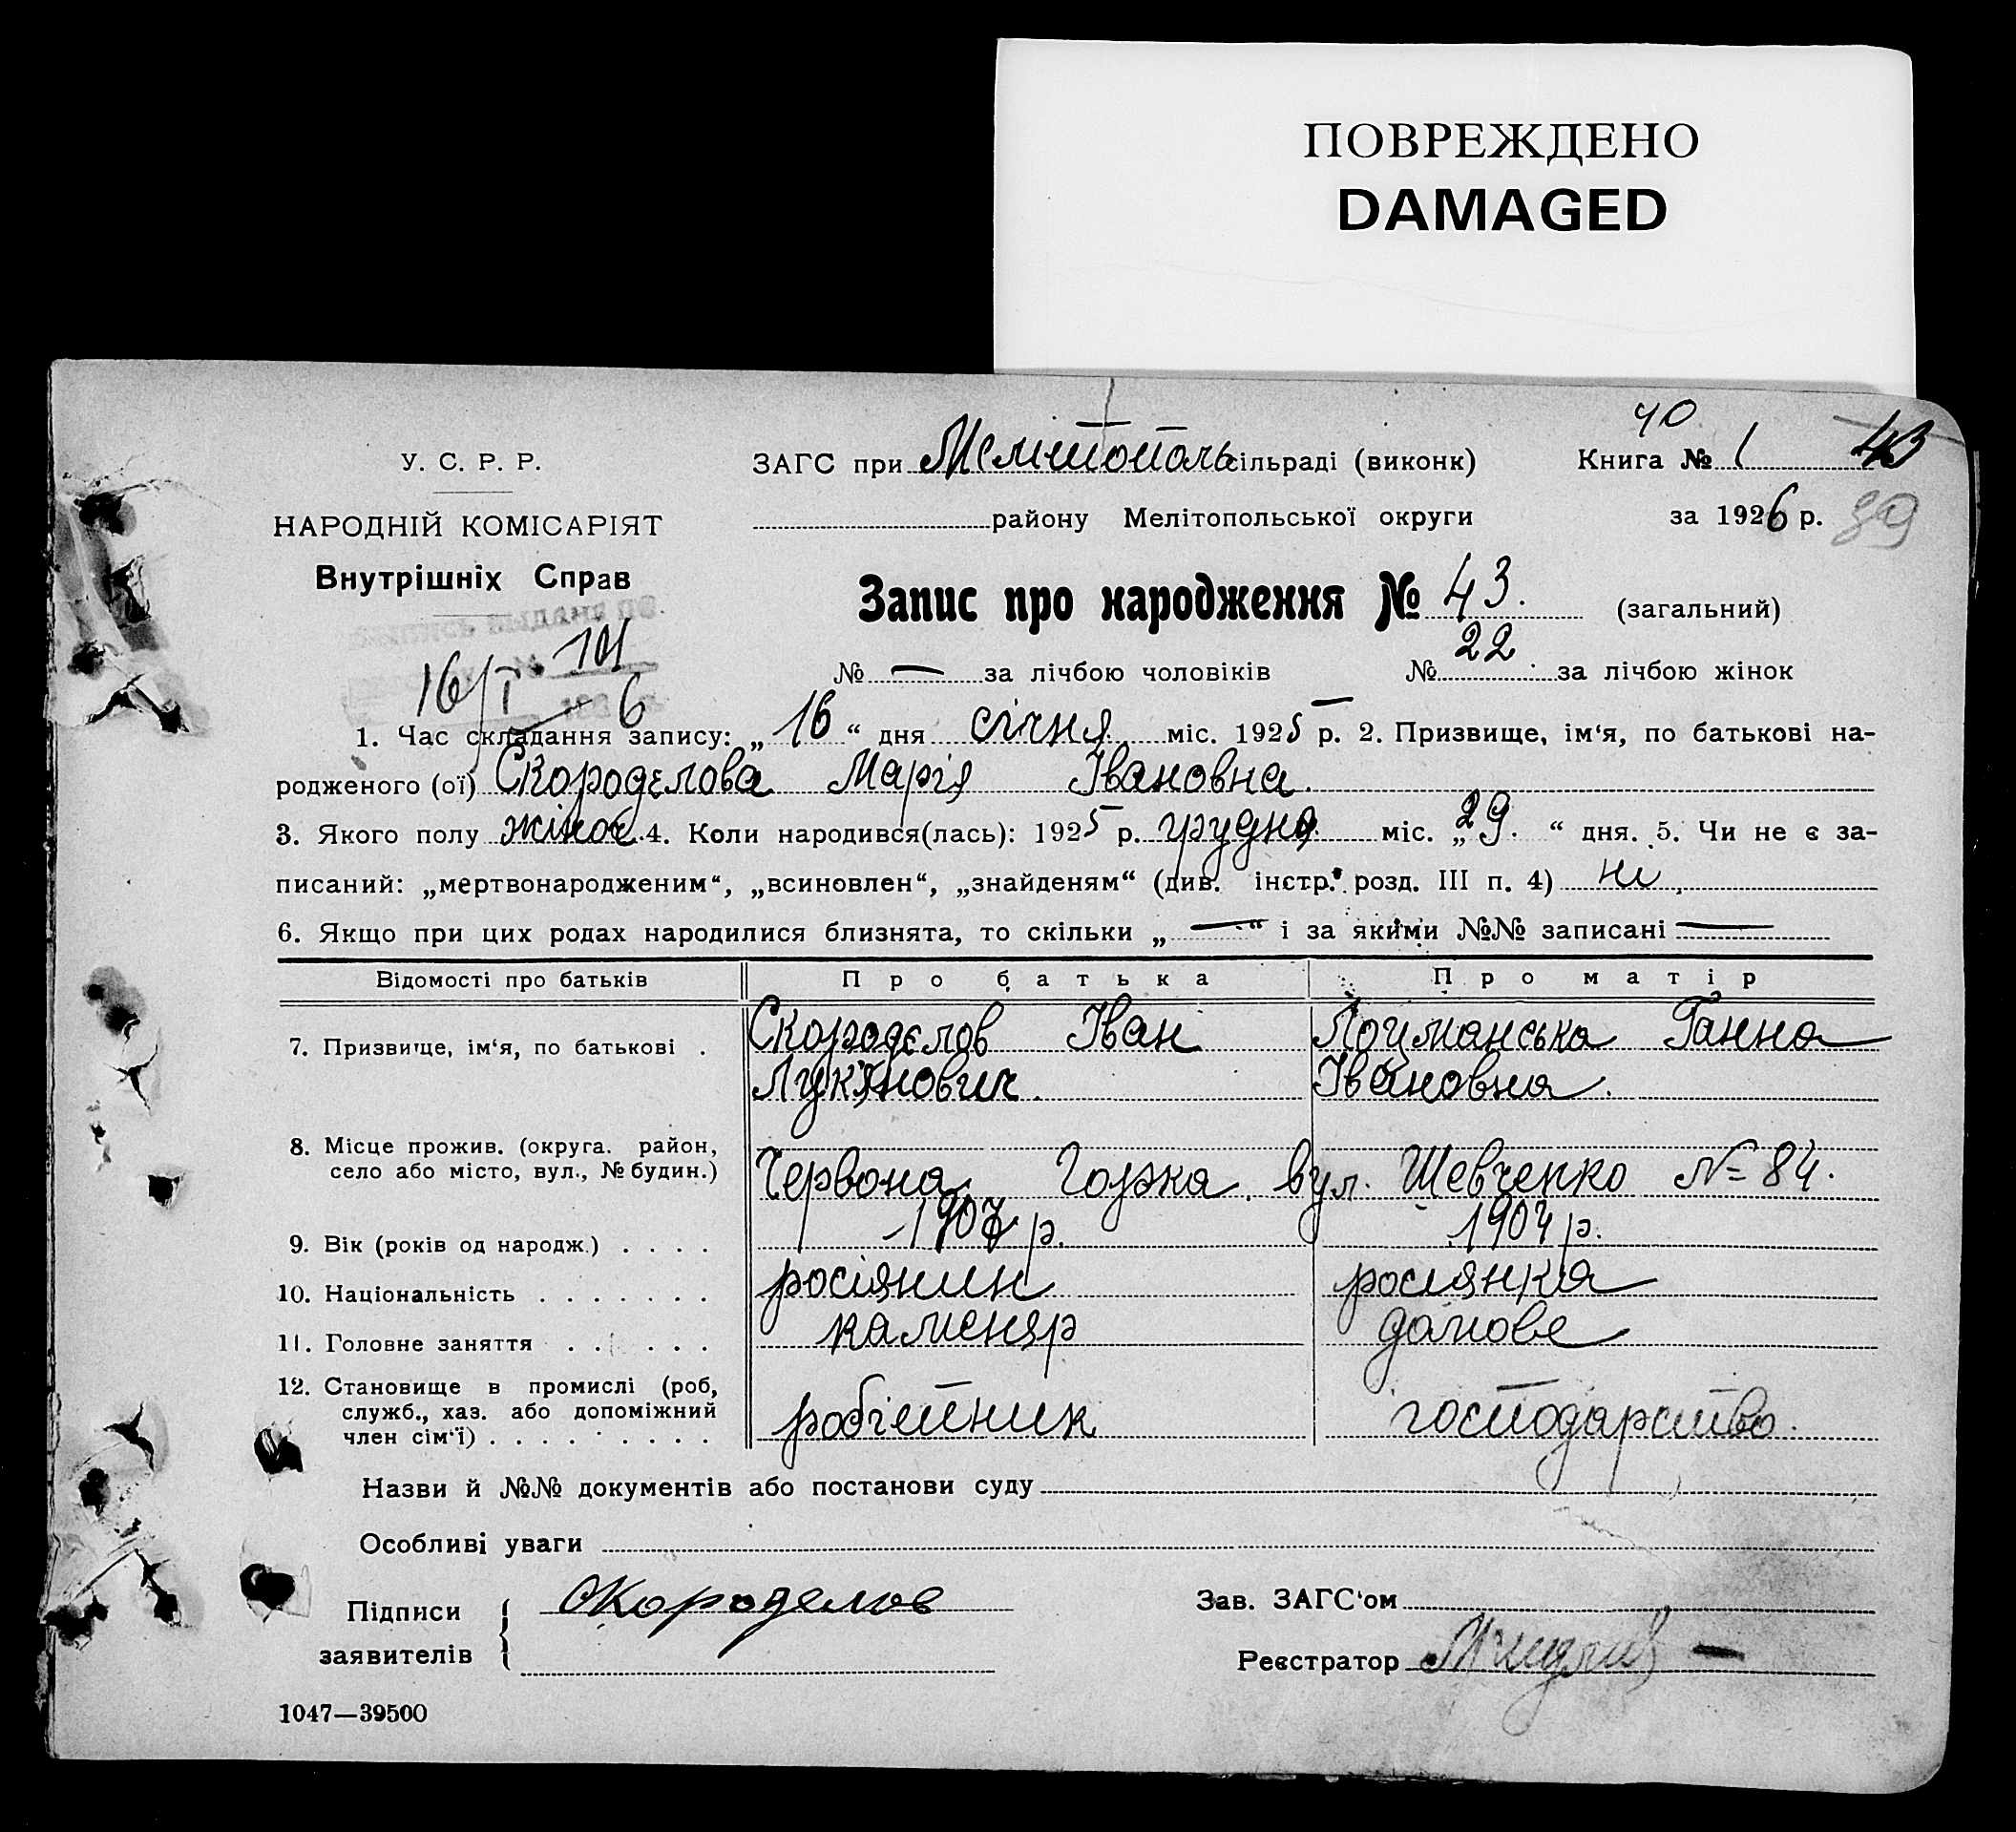 ПОВРЕЖДЕНО
DAMAGED
40
У. С. Р. Р.
ЗАГС при Мелітополь сільраді (виконк)
Книга № 1 43
НАРОДНІЙ КОМІСАРІЯТ
району Мелітопольської округи
за 1926 р. 39
Внутрішніх Справ
Запис про народження № 43. (загальний)
16/I 101
6
№ — за лічбою чоловіків № 22 за лічбою жінок
1. Час складання запису: „ 16 “ дня січня міс. 1925 р. 2. Призвище, ім‘я, по батькові на-
родженого (ої) Скороделова Марія Івановна.
3. Якого полу жіноч. 4. Коли народився(лась): 1925 р. грудня міс. „ 29. “ дня. 5. Чи не є за-
писаний: „мертвонародженим“, „всиновлен“, „знайденям“ (див. інстр. розд. III п. 4) ні
6. Якщо при цих родах народилися близнята, то скільки „ — “ і за якими №№ записані —
Відомості про батьків
Про батька
Про матір
7. Призвище, ім‘я, по батькові .
Скороделов Іван
Лукянович.
Лоцманська Ганна
Івановна.
8. Місце прожив. (округа. район,
село або місто, вул., № будин.)
Червона Горка. вул. Шевченко № 84.
9. Вік (років од народж.) . . . .
р.
1904 р.
10. Національність . . . . . . .
росіянин
росіянка
11. Головне заняття . . . . . .
каменяр
домове
12. Становище в промислі (роб,
служб., хаз. або допоміжний
член сім‘ї) . . . . . . . . . .
робітник
господарство.
Назви й №№ документів або постанови суду
Особливі уваги
Підписи
заявителів
Скороделов
Зав. ЗАГС‘ом
Реєстратор
1047—39500